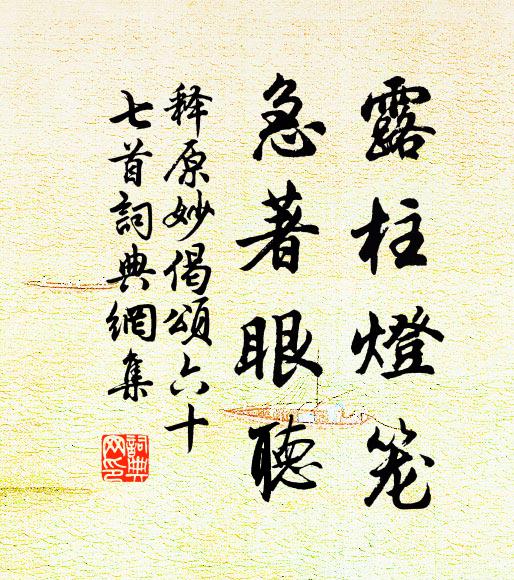 露柱燈笼
急著眼聽
释原妙偈頌六十
七首詞典網集
詞典
网印